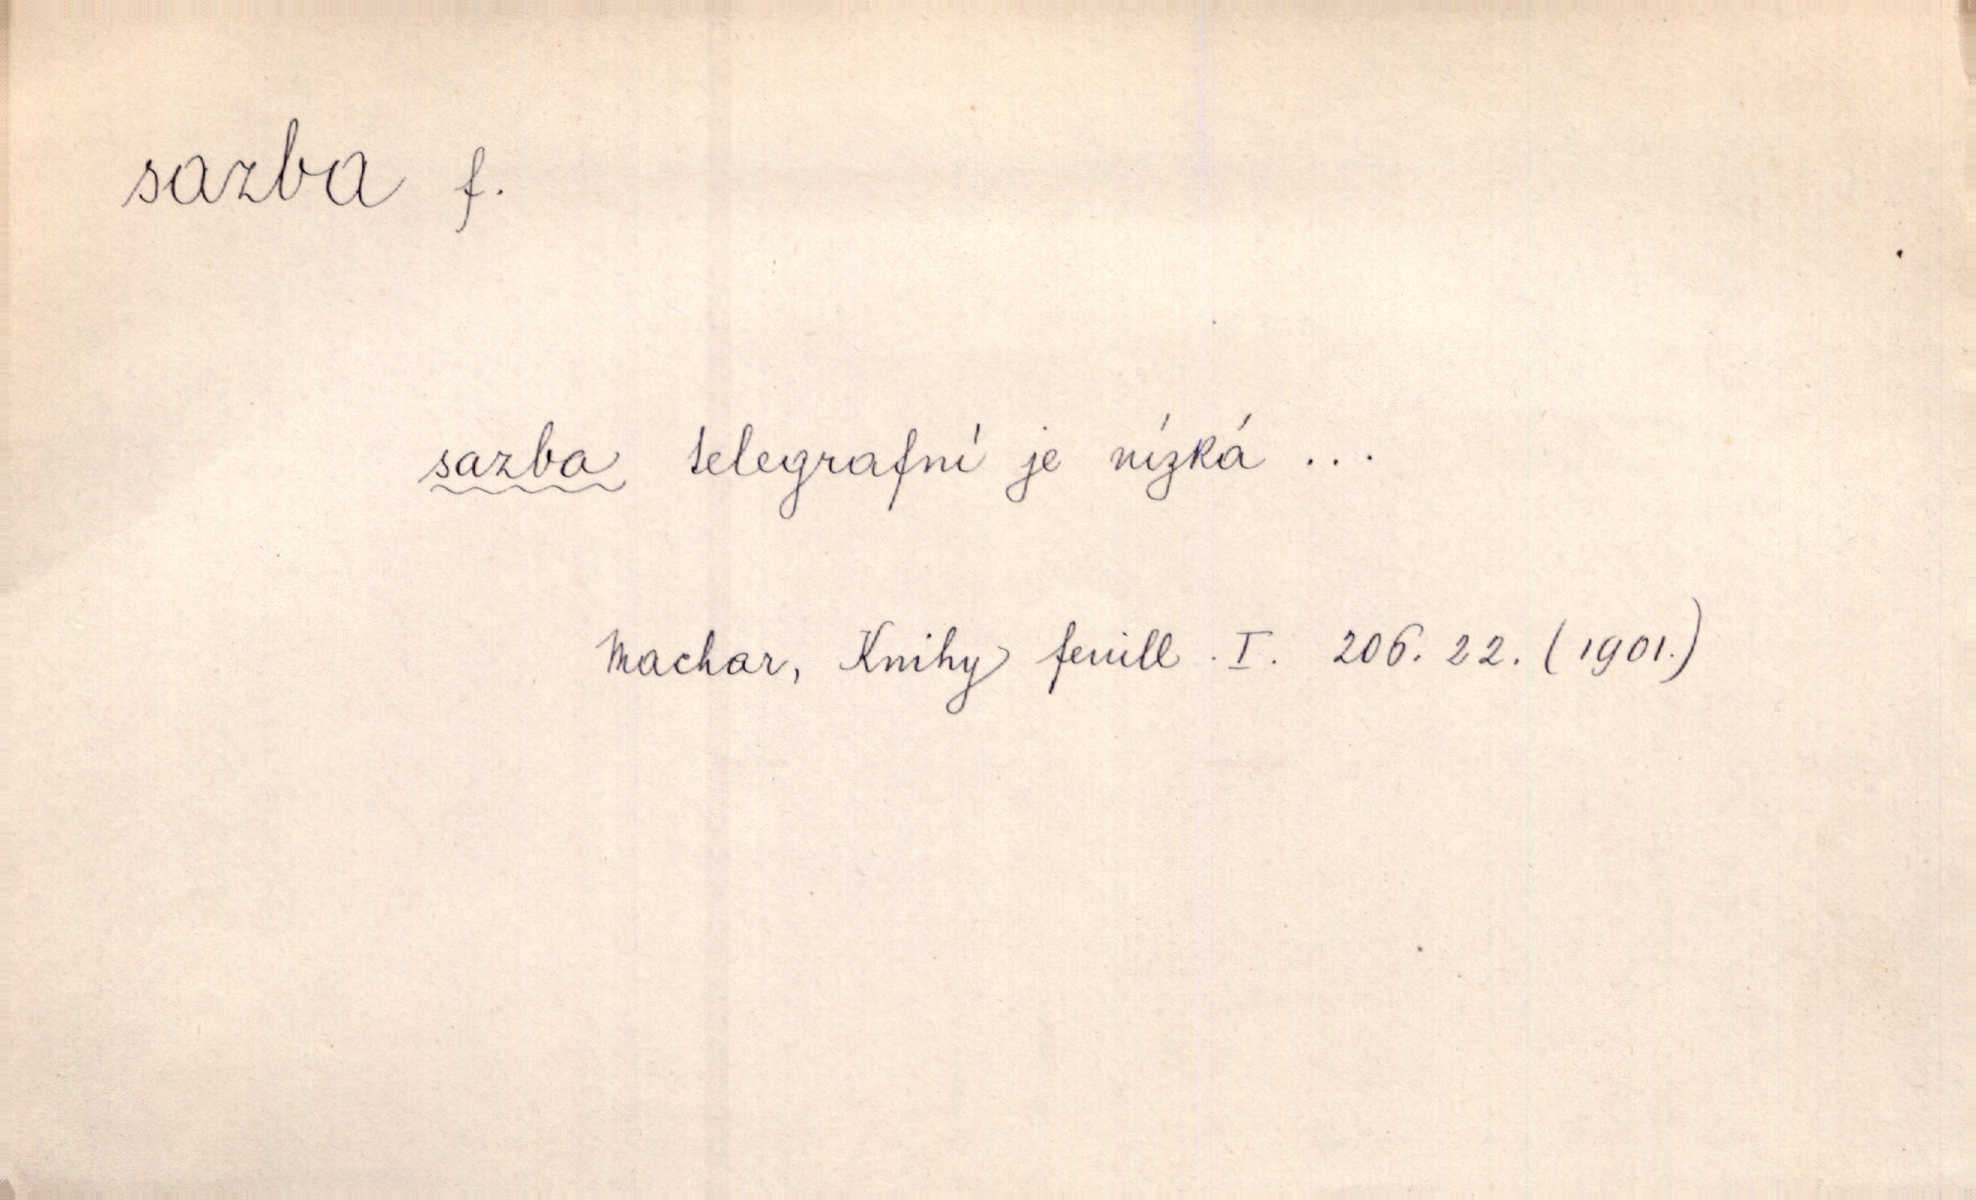 sazba f.
sazba telegrafní je nízká ...
Machar, Knihy feuill. I. 206. 22. (1901.)